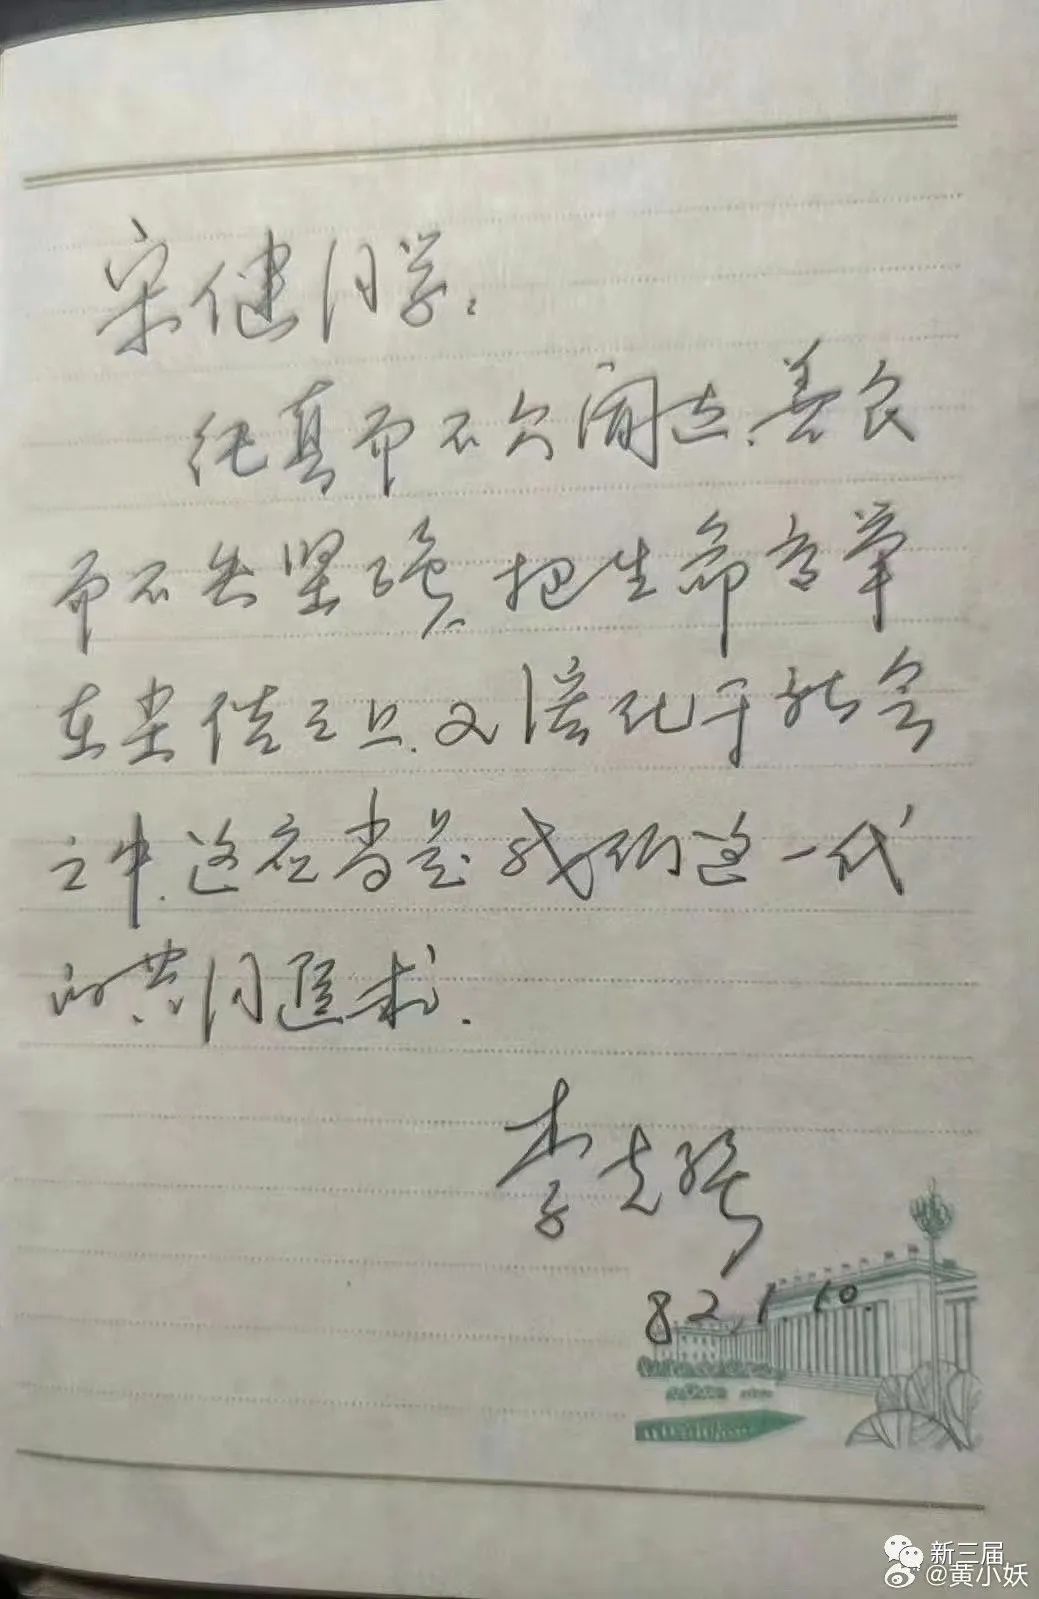 宋健同学:
纯真而不欠阔达,善良
而不失坚强,把生命高举
在尘俗之上,又溶化于社会
之中,这应当是我们这一代
的共同追求.
李克强
82.1.10.
新三届
@黄小妖